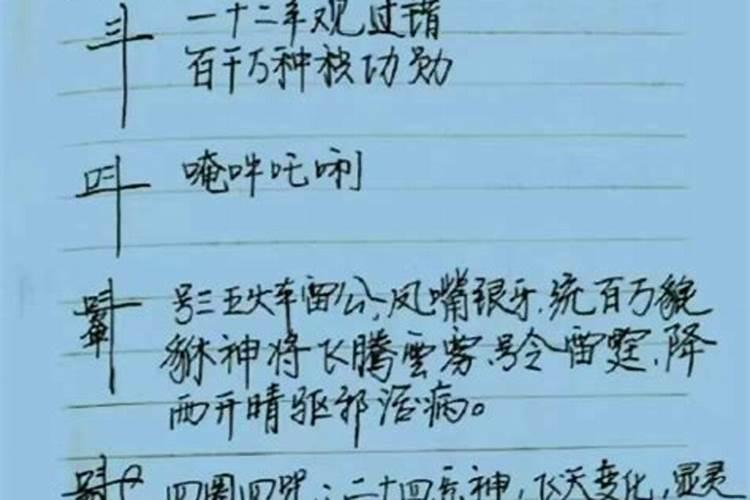 一十二年观过错
百千万种积功勋
唵吽吒唎
号三五火车雷公、凤嘴银牙、统百万貔
貅神将飞腾雲雾、号令雷霆、降
雨开晴驱邪治病。
四圈四咒：二十四元神，飞天变化，显灵